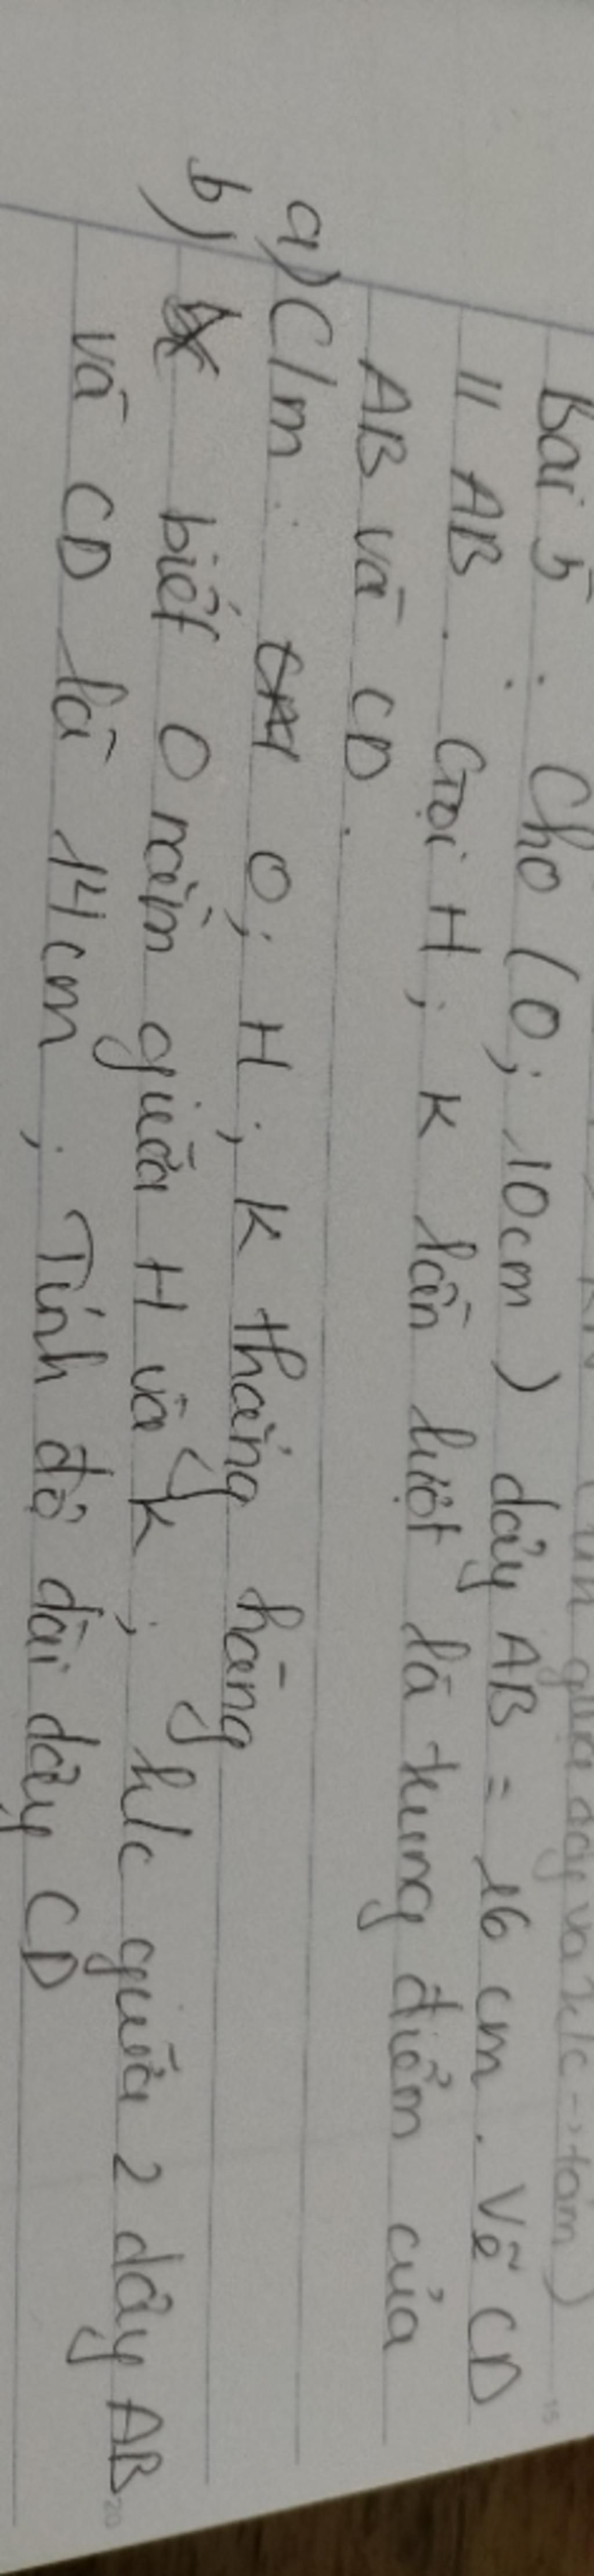 Bài 5 : Cho (O; 10cm) dây AB = 16 cm. Vẽ CD
// AB. Gọi H; K lần lượt là trung điểm của
AB và CD.
a) C/m: O; H; K thẳng hàng
b) biết O nằm giữa H và K; k/c giữa 2 dây AB
và CD là 14cm; Tính độ dài dây CD
15
20